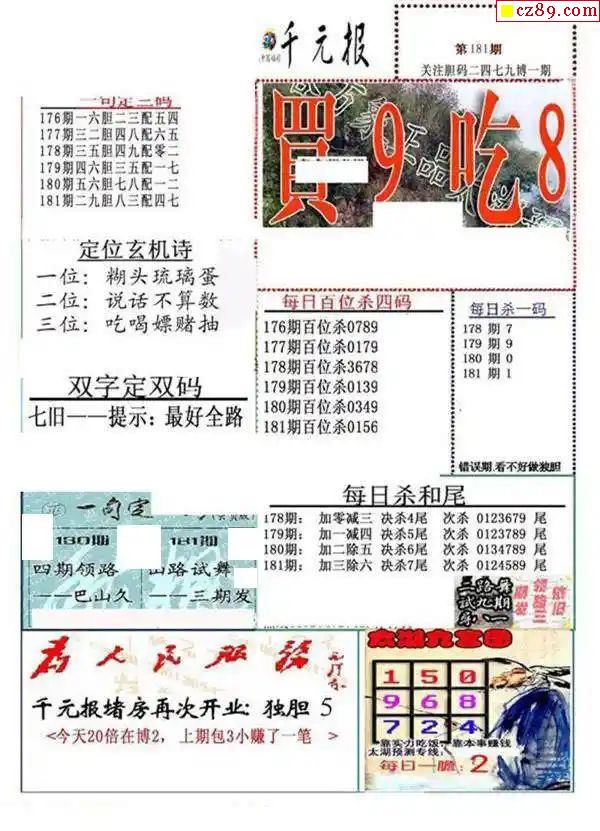 cz89.com
千元报
第181期
关注胆码二四七九博一期
一句定三码
176期一六胆二三配五四
177期三二胆四八配六五
178期三五胆四九配零二
179期四六胆三五配一七
180期五六胆七八配一二
181期二九胆八三配四七
買9吃8
定位玄机诗
一位：糊头琉璃蛋
二位：说话不算数
三位：吃喝嫖赌抽
每日百位杀四码
176期百位杀0789
177期百位杀0179
178期百位杀3678
179期百位杀0139
180期百位杀0349
181期百位杀0156
每日杀一码
178期7
179期9
180期0
181期1
错误期.看不好做独胆
双字定双码
七旧——提示：最好全路
每日杀和尾
178期：加零减三 决杀4尾 次杀 0123679 尾
179期：加一减四 决杀5尾 次杀 0123789 尾
180期：加二除五 决杀6尾 次杀 0134789 尾
181期：加三除六 决杀7尾 次杀 0124589 尾
一句定
180期
四期领路
——巴山久
181期
山路试舞
——三期发
为人民服务
千元报堵房再次开业：独胆 5
<今天20倍在博2，上期包3小赚了一笔>
太湖九宫图
1 5 0
9 6 8
7 2 4
靠实力吃饭，靠本事赚钱
太湖预测专线：
每日一胆：2